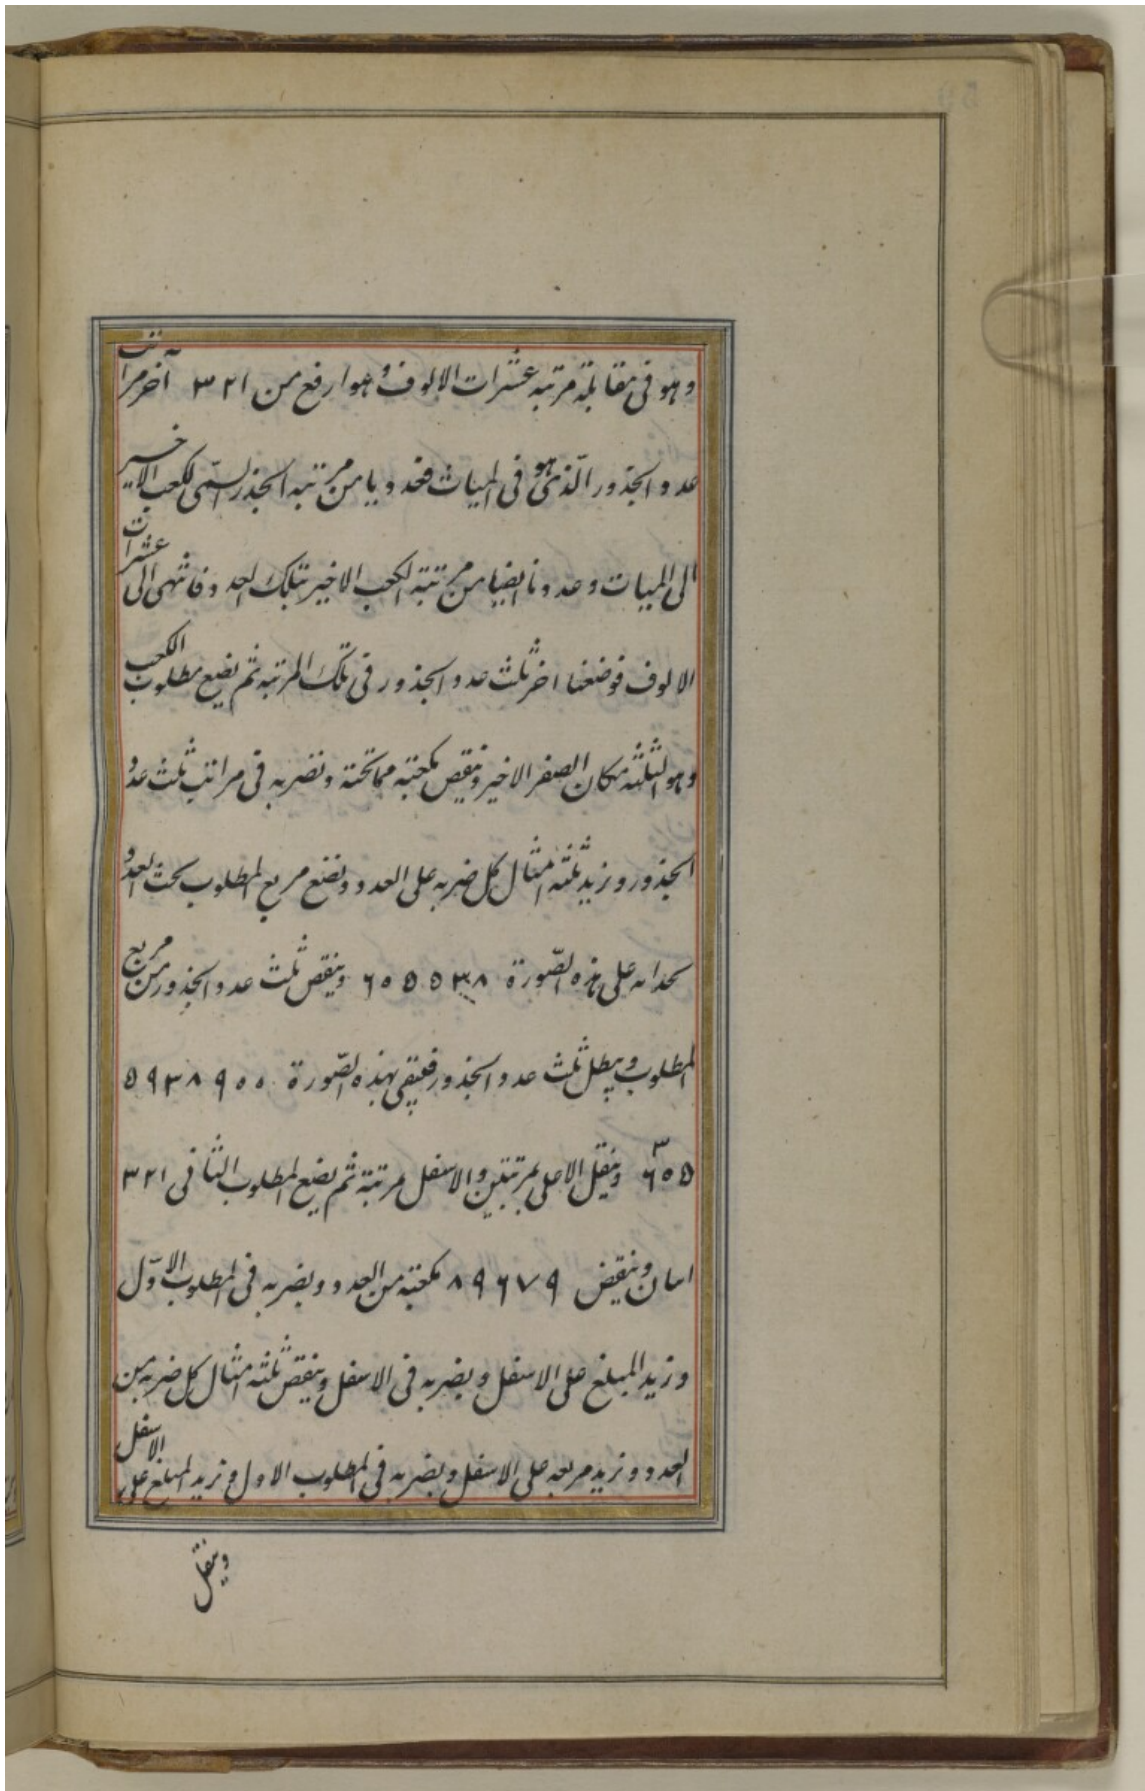 وهو فى مقابلة مرتبه عشرات الالوف وهو ارفع من ٣٢١ آخر مراتب
عدد الجذور الّذى هو فى الميات فخد ويا من مرتبه الجذر السّمى لكعب الاخير
الى الميات وعددنا ايضا من مرتبة الكعب الاخير بتلك العدد فانتهى الى عشرات
الالوف فوضعنا اخر ثلث عدد الجذور فى تلك المرتبه ثم نضع مطلوب الكعب
وهو الثلثه مكان الصفر الاخير وينقص مكعبه مما تحته ونضربه فى مراتب ثلث عدد
الجذور ونزيد ثلثه امثال كل ضربه على العدد ونضع مربع المطلوب تحت العدد
بحذائه على هذه الصّورة ٦٥٥٥٣٨ وينقص ثلث عدد الجذور من مربع
المطلوب ويبطل ثلث عدد الجذور فيبقى بهذه الصّورة ٥٩٣٨٩٠٠
٣ ٦٥٥ وينقل الاعلى بمرتبتين والاسفل مرتبة ثم يضع المطلوب الثانى ٣٢١
امان وينقض ٨٩٦٧٩ مكعبه من العدد ويضربه فى المطلوب الاوّل
ونزيد المبلغ على الاسفل ويضربه فى الاسفل وينقص ثلثه امثال كل ضربه من
العدد ونزيد مربعه على الاسفل ويضربه فى المطلوب الاول ونزيد المبلغ على الاسفل
وينقل